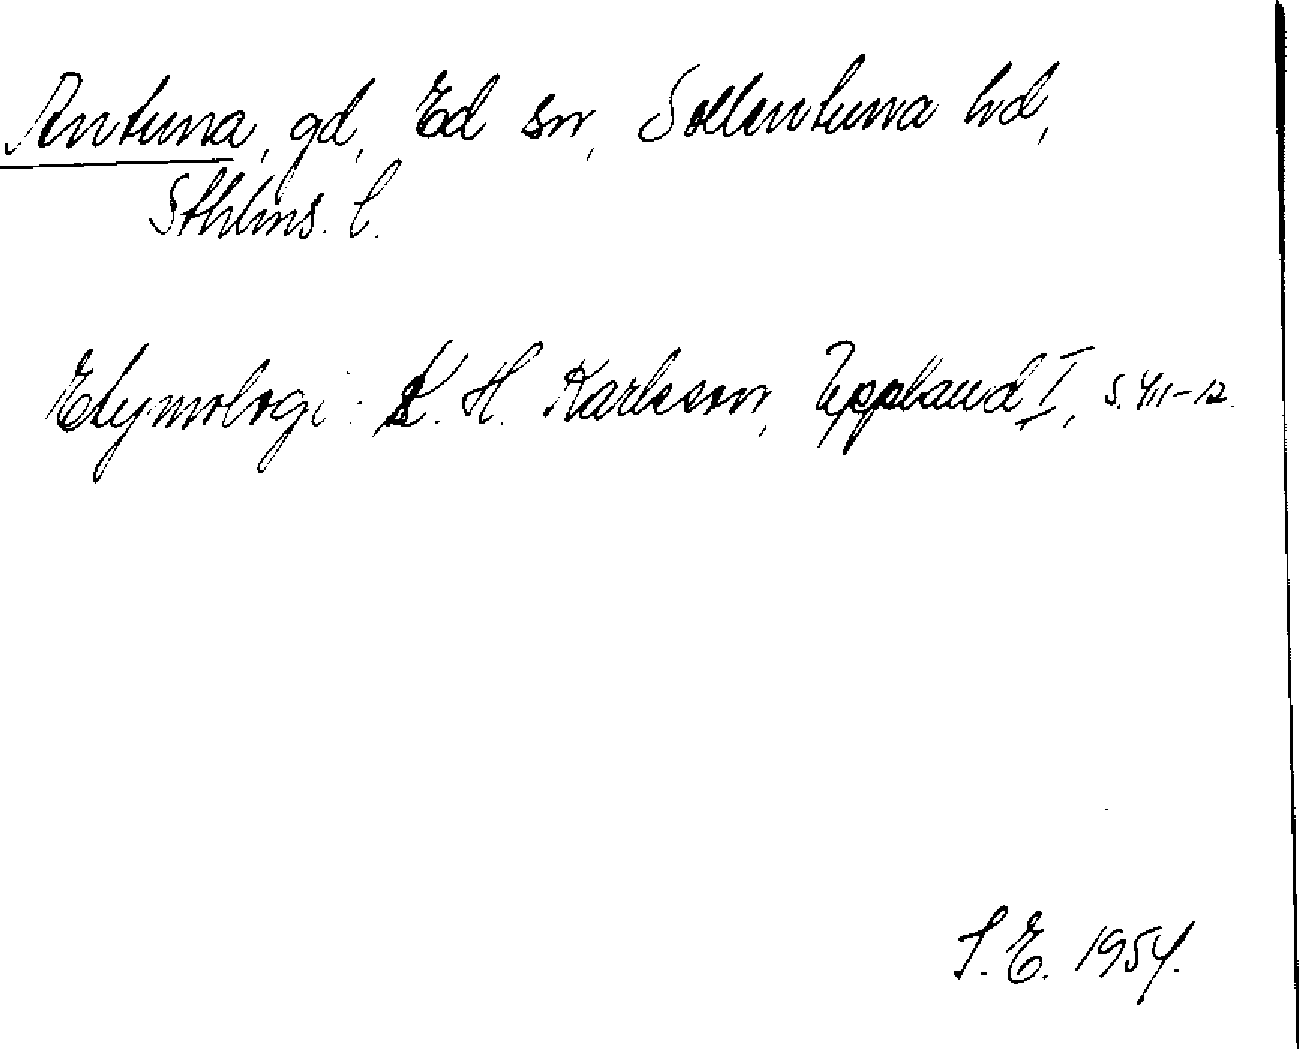 Antuna, gd, Ed sn, Sollentuna hd,
Sthlms. l.
Etymologi: K. H. Karlsson, Uppland I, s. 411-12.
S. E. 1954.